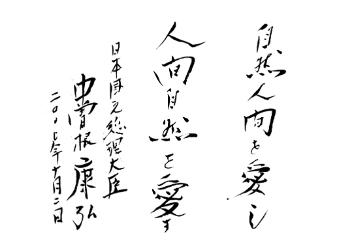 自然人間を愛し
人間自然を愛す
日本国元総理大臣
中曽根康弘
二〇〇七年十月三日